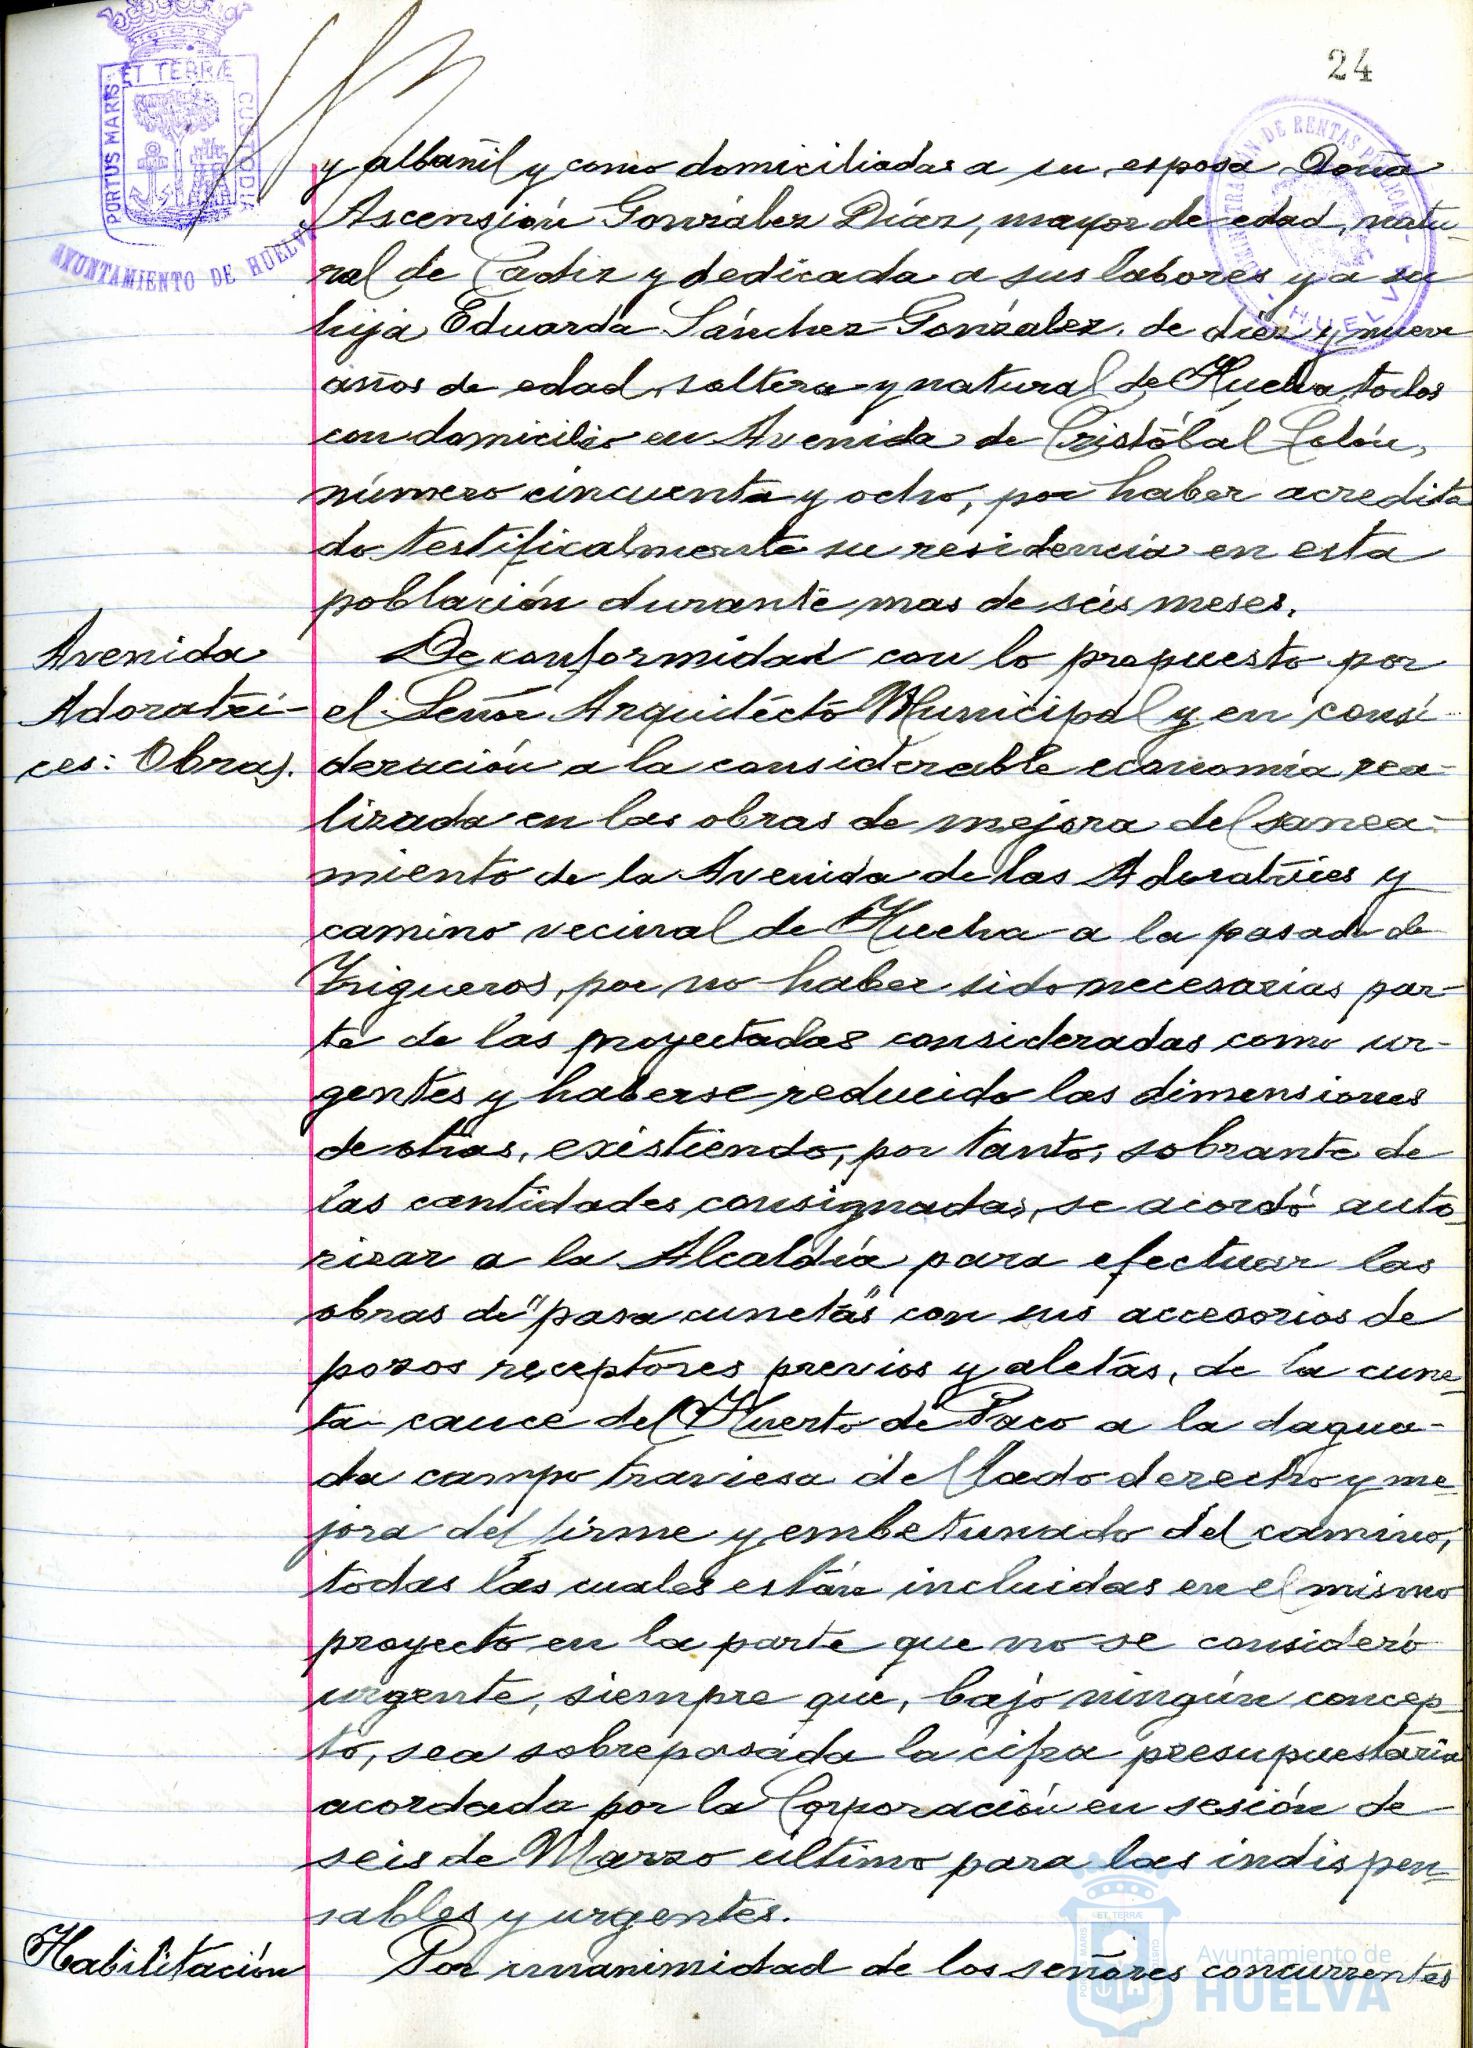 24
PORTUS MARIS ET TERRÆ CUSTODIA
AYUNTAMIENTO DE HUELVA
ADMINISTRACIÓN DE RENTAS PÚBLICAS
HUELVA
y albañil y como domiciliadas a su esposa Doña
Ascensión González Díaz, mayor de edad, natu-
ral de Cádiz y dedicada a sus labores y a su
hija Eduarda Sánchez González, de diez y nueve
años de edad, soltera y natural de Huelva, todos
con domicilio en Avenida de Cristóbal Colón,
número cincuenta y ocho, por haber acredita
do testificalmente su residencia en esta
población durante mas de séis meses.
Avenida
Adoratri-
ces: Obras.
De conformidad con lo propuesto por
el Señor Arquitécto Municipal y en consi-
deración a la considerable economía rea-
lizada en las obras de mejora del sanea-
miento de la Avenida de las Adoratrices y
camino vecinal de Huelva a la pasada de
Trigueros, por no haber sido necesarias par-
te de las proyectadas consideradas como ur-
gentes y haberse reducido las dimensiones
de otras, existiendo, por tanto, sobrante de
las cantidades consignadas, se acordó auto-
rizar a la Alcaldía para efectuar las
obras de "pasa cunetas" con sus accesorios de
pozos receptores previos y aletas, de la cune-
ta cauce del Huerto de Paco a la dagua-
da campo traviesa del lado derecho y me-
jora del firme y embetunado del camino,
todas las cuales están incluidas en el mismo
proyecto en la parte que no se consideró
urgente, siempre que, bajo ningún concep-
to, sea sobrepasada la cifra presupuestaria
acordada por la Corporación en sesión de
seis de Marzo último para las indispen-
sables y urgentes.
Habilitación
Por unanimidad de los señores concurrentes
Ayuntamiento de
HUELVA